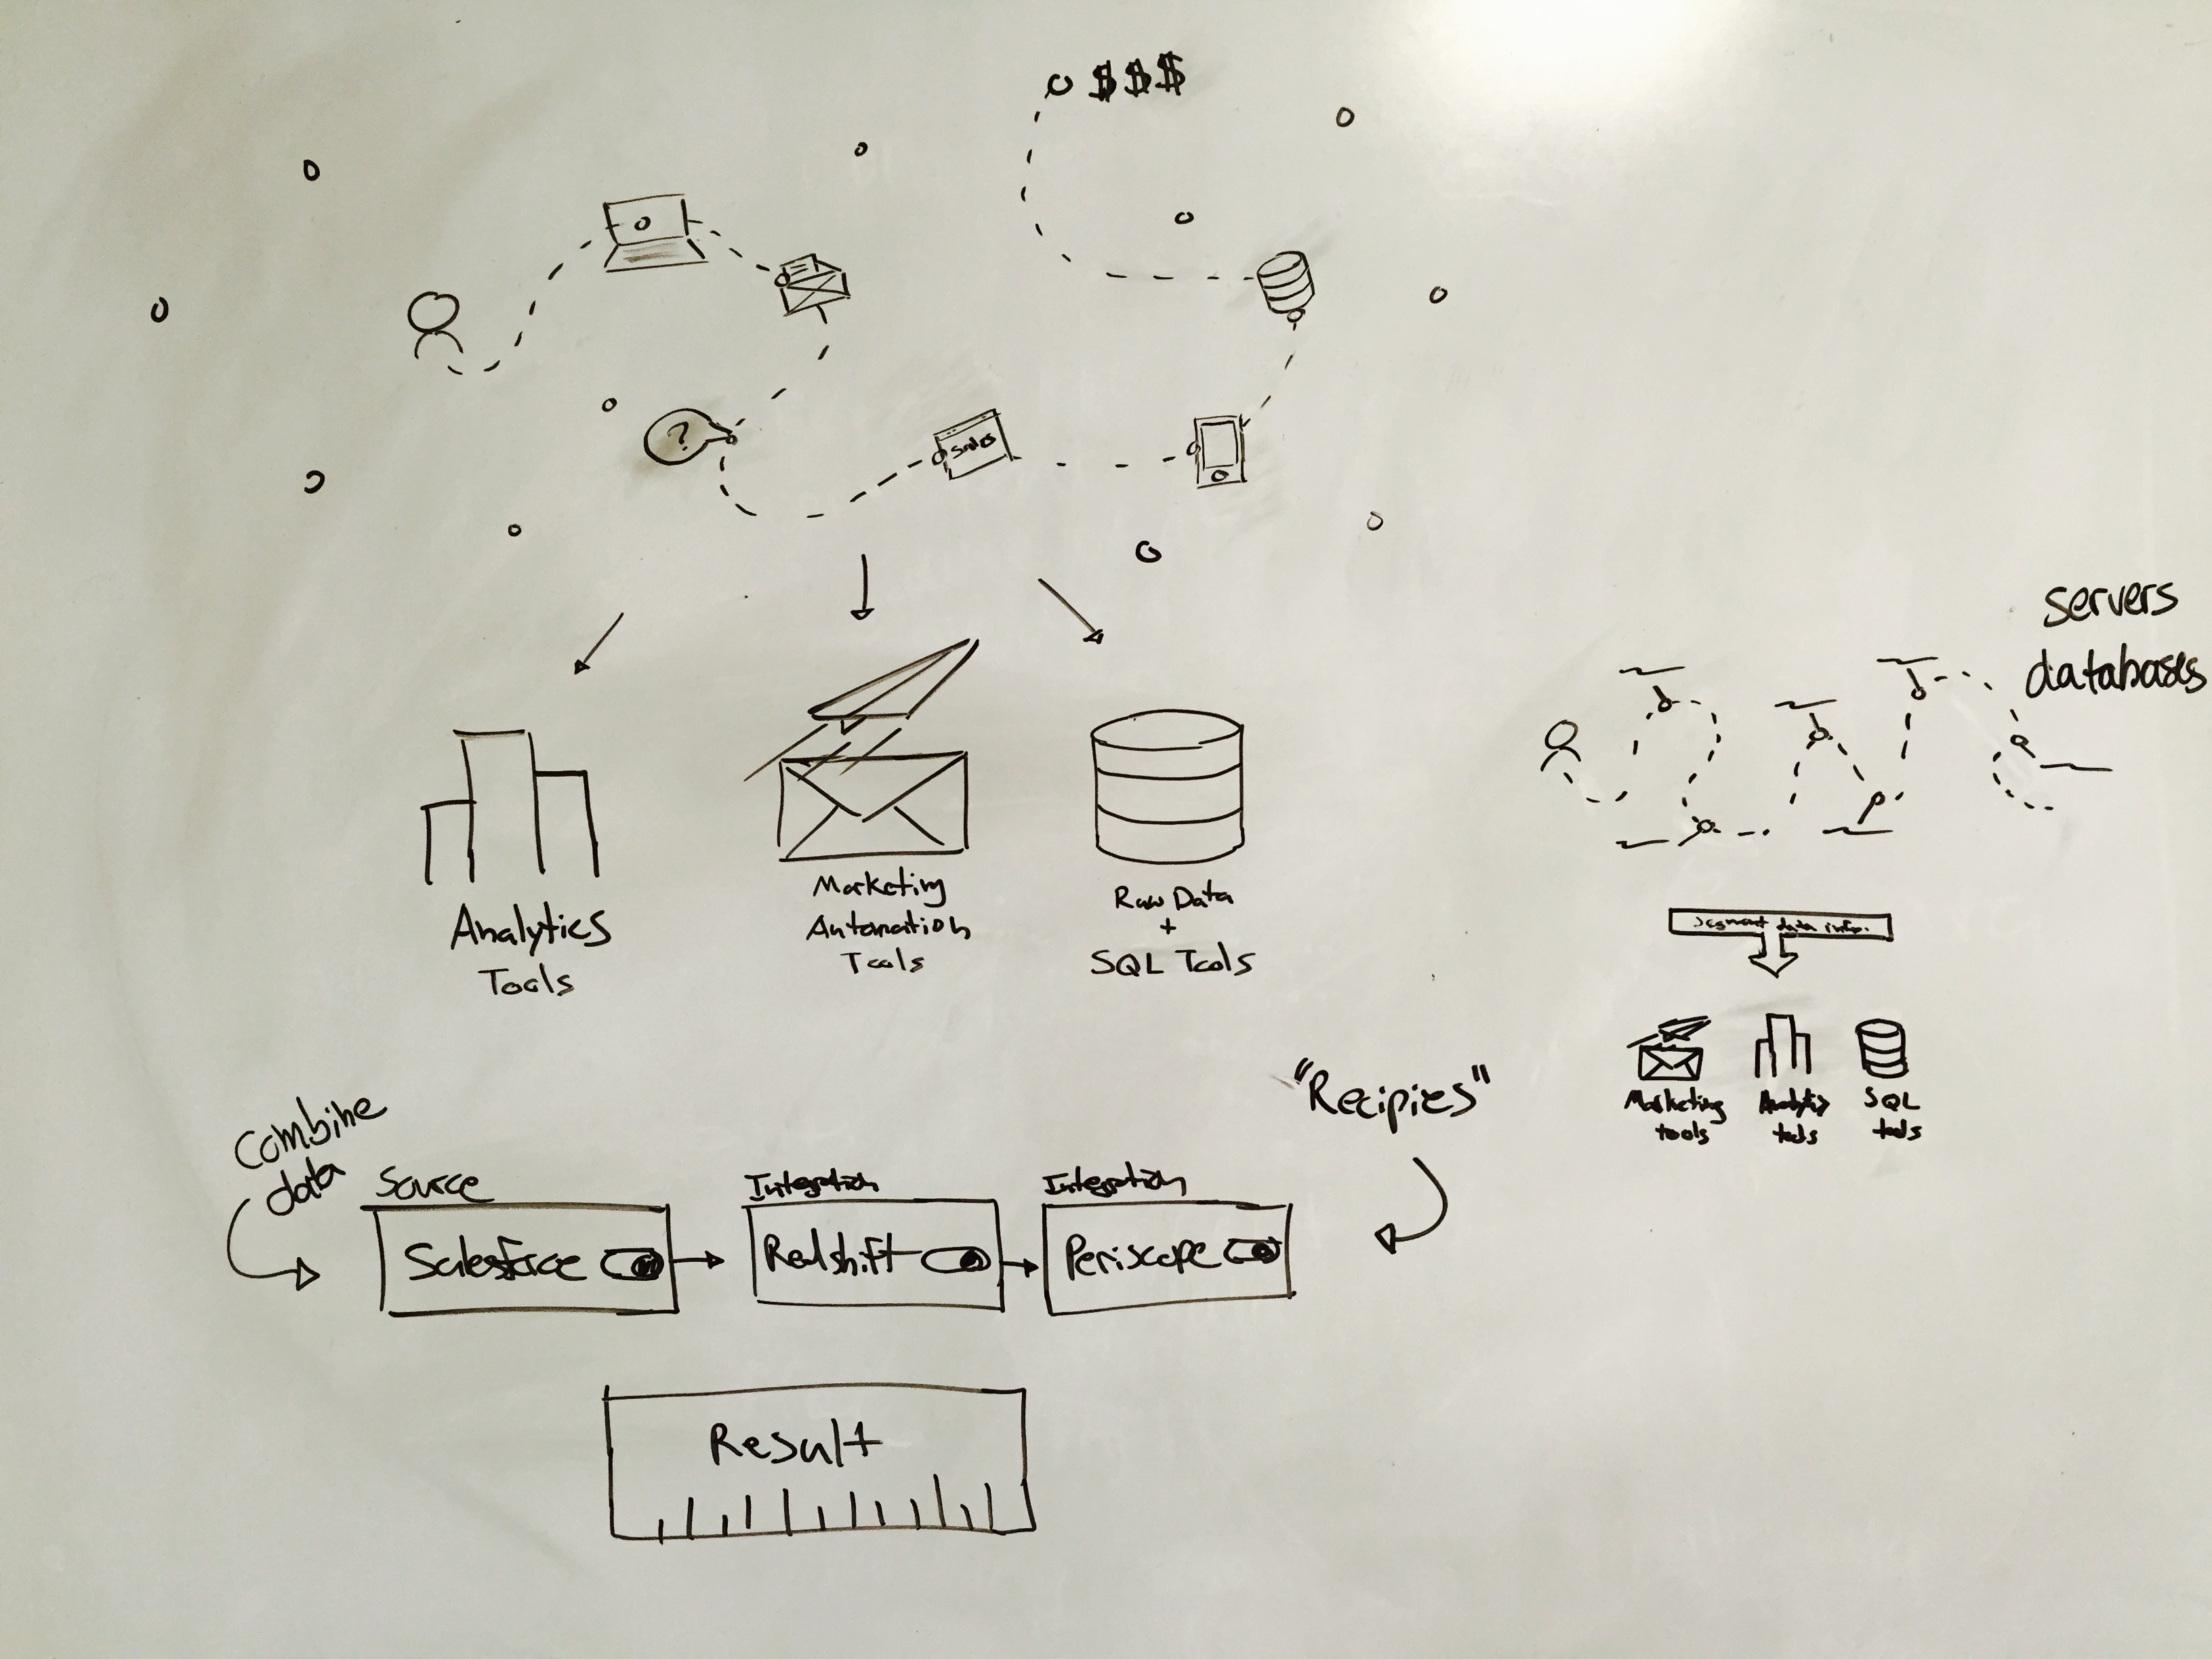 $$$
?
sales
servers
databases
Analytics
Tools
Marketing
Automation
Tools
Raw Data
+
SQL Tools
Segment data infra.
Marketing
tools
Analytics
tools
SQL
tools
"Recipies"
Combine
data
Source
Salesforce
Integration
Redshift
Integration
Periscope
Result